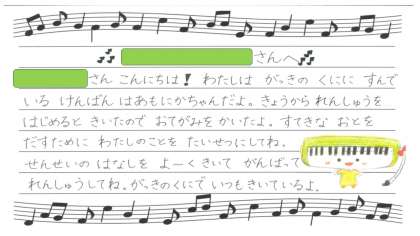 さんへ
さん こんにちは！ わたしは がっきの くにに すんで
いる けんばん はあもにかちゃんだよ。きょうから れんしゅうを
はじめると きいたので おてがみを かいたよ。すてきな おとを
だすために わたしのことを たいせつにしてね。
せんせいの はなしを よーくきいて がんばって
れんしゅうしてね。がっきのくにで いつもきいているよ。